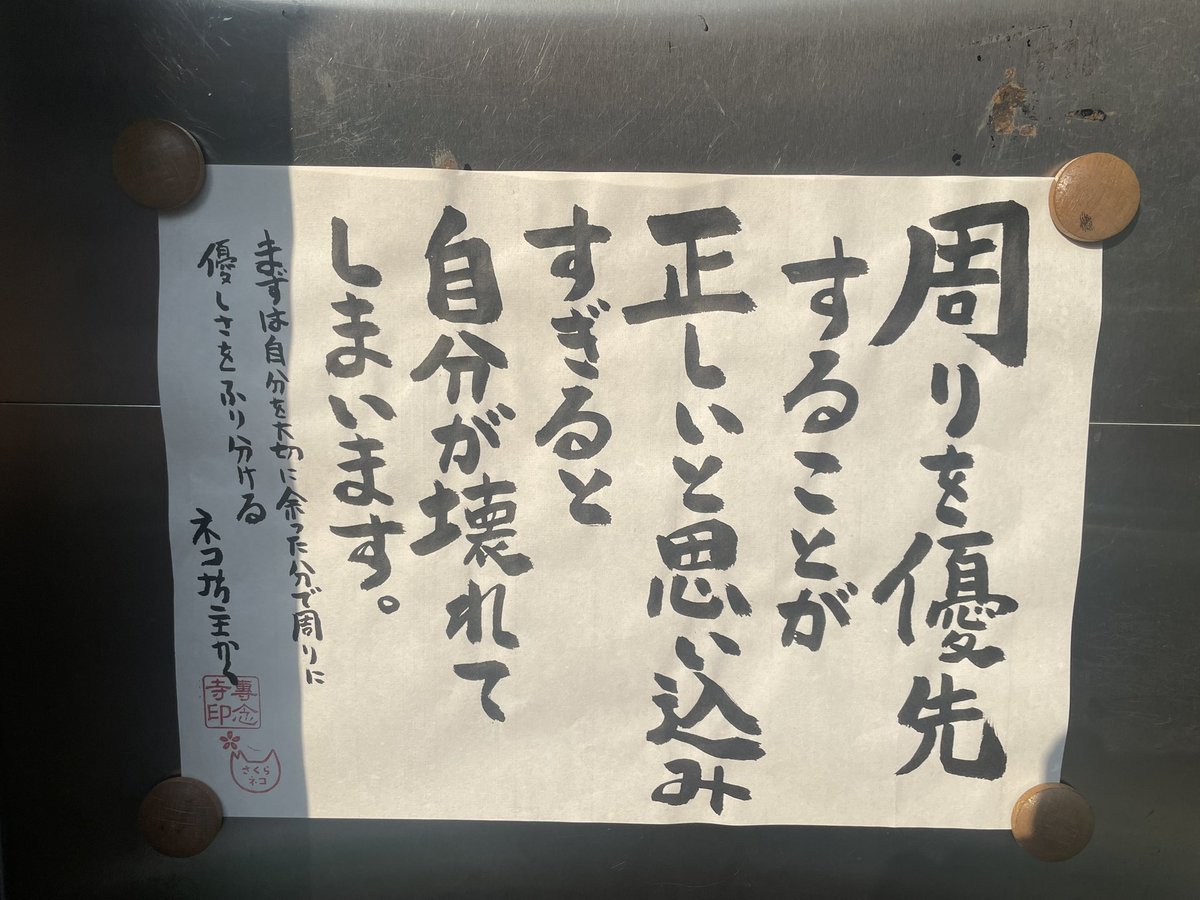 周りを優先
することが
正しいと思い込み
すぎると
自分が壊れて
しまいます。
まずは自分を大切に余った分で周りに
優しさをふり分ける
ネコ坊主かく
專念
寺印
さくら
ネコ